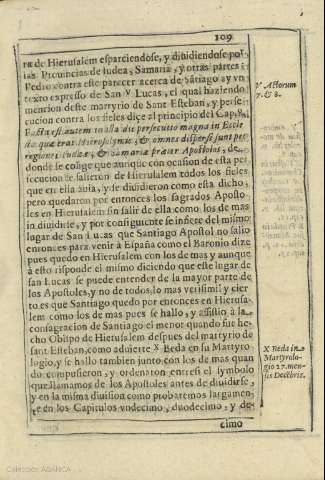 109
ra de Hierusalem esparciendose, y diuidiendose por
las Prouincias de Iudea, Samaria, y otras partes.
Pedro contra este parecer acerca de Sātiago ay vn
texto expresso de San V Lucas, el qual haziendo
mencion deste martyrio de Sant Esteban, y perse
cucion contra los fieles dice al principio del Cap. 8.
Facta est autem in illa die persecutio magna in Eccle
sia quæ erat Hierosolymis, & omnes dispersi sunt per
regiones Iudææ, & Samariæ præter Apostolos, de
donde se colige que aunque con ocasion de esta per
secucion se salieron de Hierusalem todos los fieles
que en ella auia, y se diuidieron como esta dicho,
pero quedaron por entonces los sagrados Aposto-
les en Hierusalem sin salir de ella como los de mas
in diuidirse, y por consiguiente se infiere del mismo
lugar de San Lucas que Santiago Apostol no salio
entronces para venir à España como el Baronio dize
pues quedo en Hierusalem con los de mas y aunque
à esto risponde el mismo diciendo que este lugar de
san Lucas se puede entender de la mayor parte de
los Apostoles, y no de todos, lo mas verisimil y cier
to es que Santiago quedo por entonces en Hierusa-
lem como los de mas pues se hallo, y assistio à la
consagracion de Santiago el menor quando fue he-
cho Obispo de Hierusalem despues del martyrio de
sant Esteban, como aduierte X Beda en su Martyro
logio, y se hallo tambien junto con los de mas quan
do compusieron, y ordenaron entresi el symbolo
que llamamos de los Apostoles antes de diuidirse,
y en la misma diuision como probaremos largamen-
te en los Capitulos vndecimo, duodecimo, y de-
cimo
V Actorum
7. & 8.
X Beda in
Martyrolo-
gio 27. men-
sis Decēbris.
Colección ABANCA